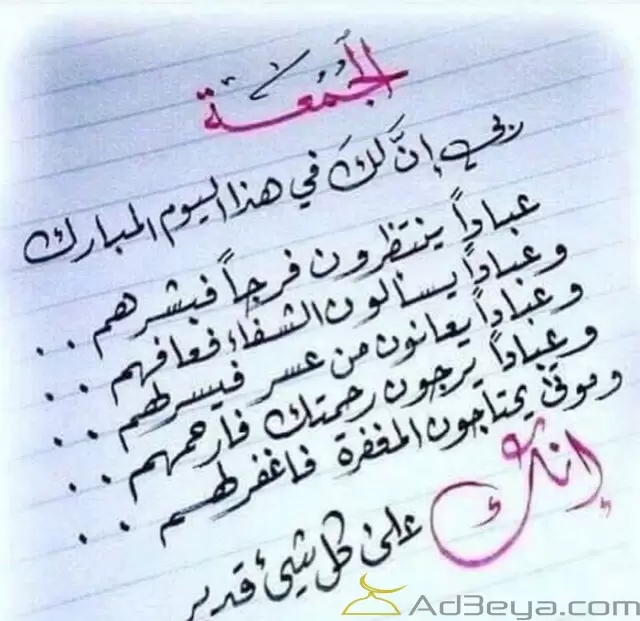 الجُمُعة
ربي إنَّ لكَ في هذا اليوم المبارك
عباداً ينتظرون فرجاً فبشرهم . .
وعباداً يسألون الشفاء فعافهم . .
وعباداً يعانون من عسر فيسرلهم . .
وعباداً يرجون رحمتك فارحمهم . .
وموتى يحتاجون المغفرة فاغفرلهم . .
إنك
على كل شيئ قدير
Ad3eya.com